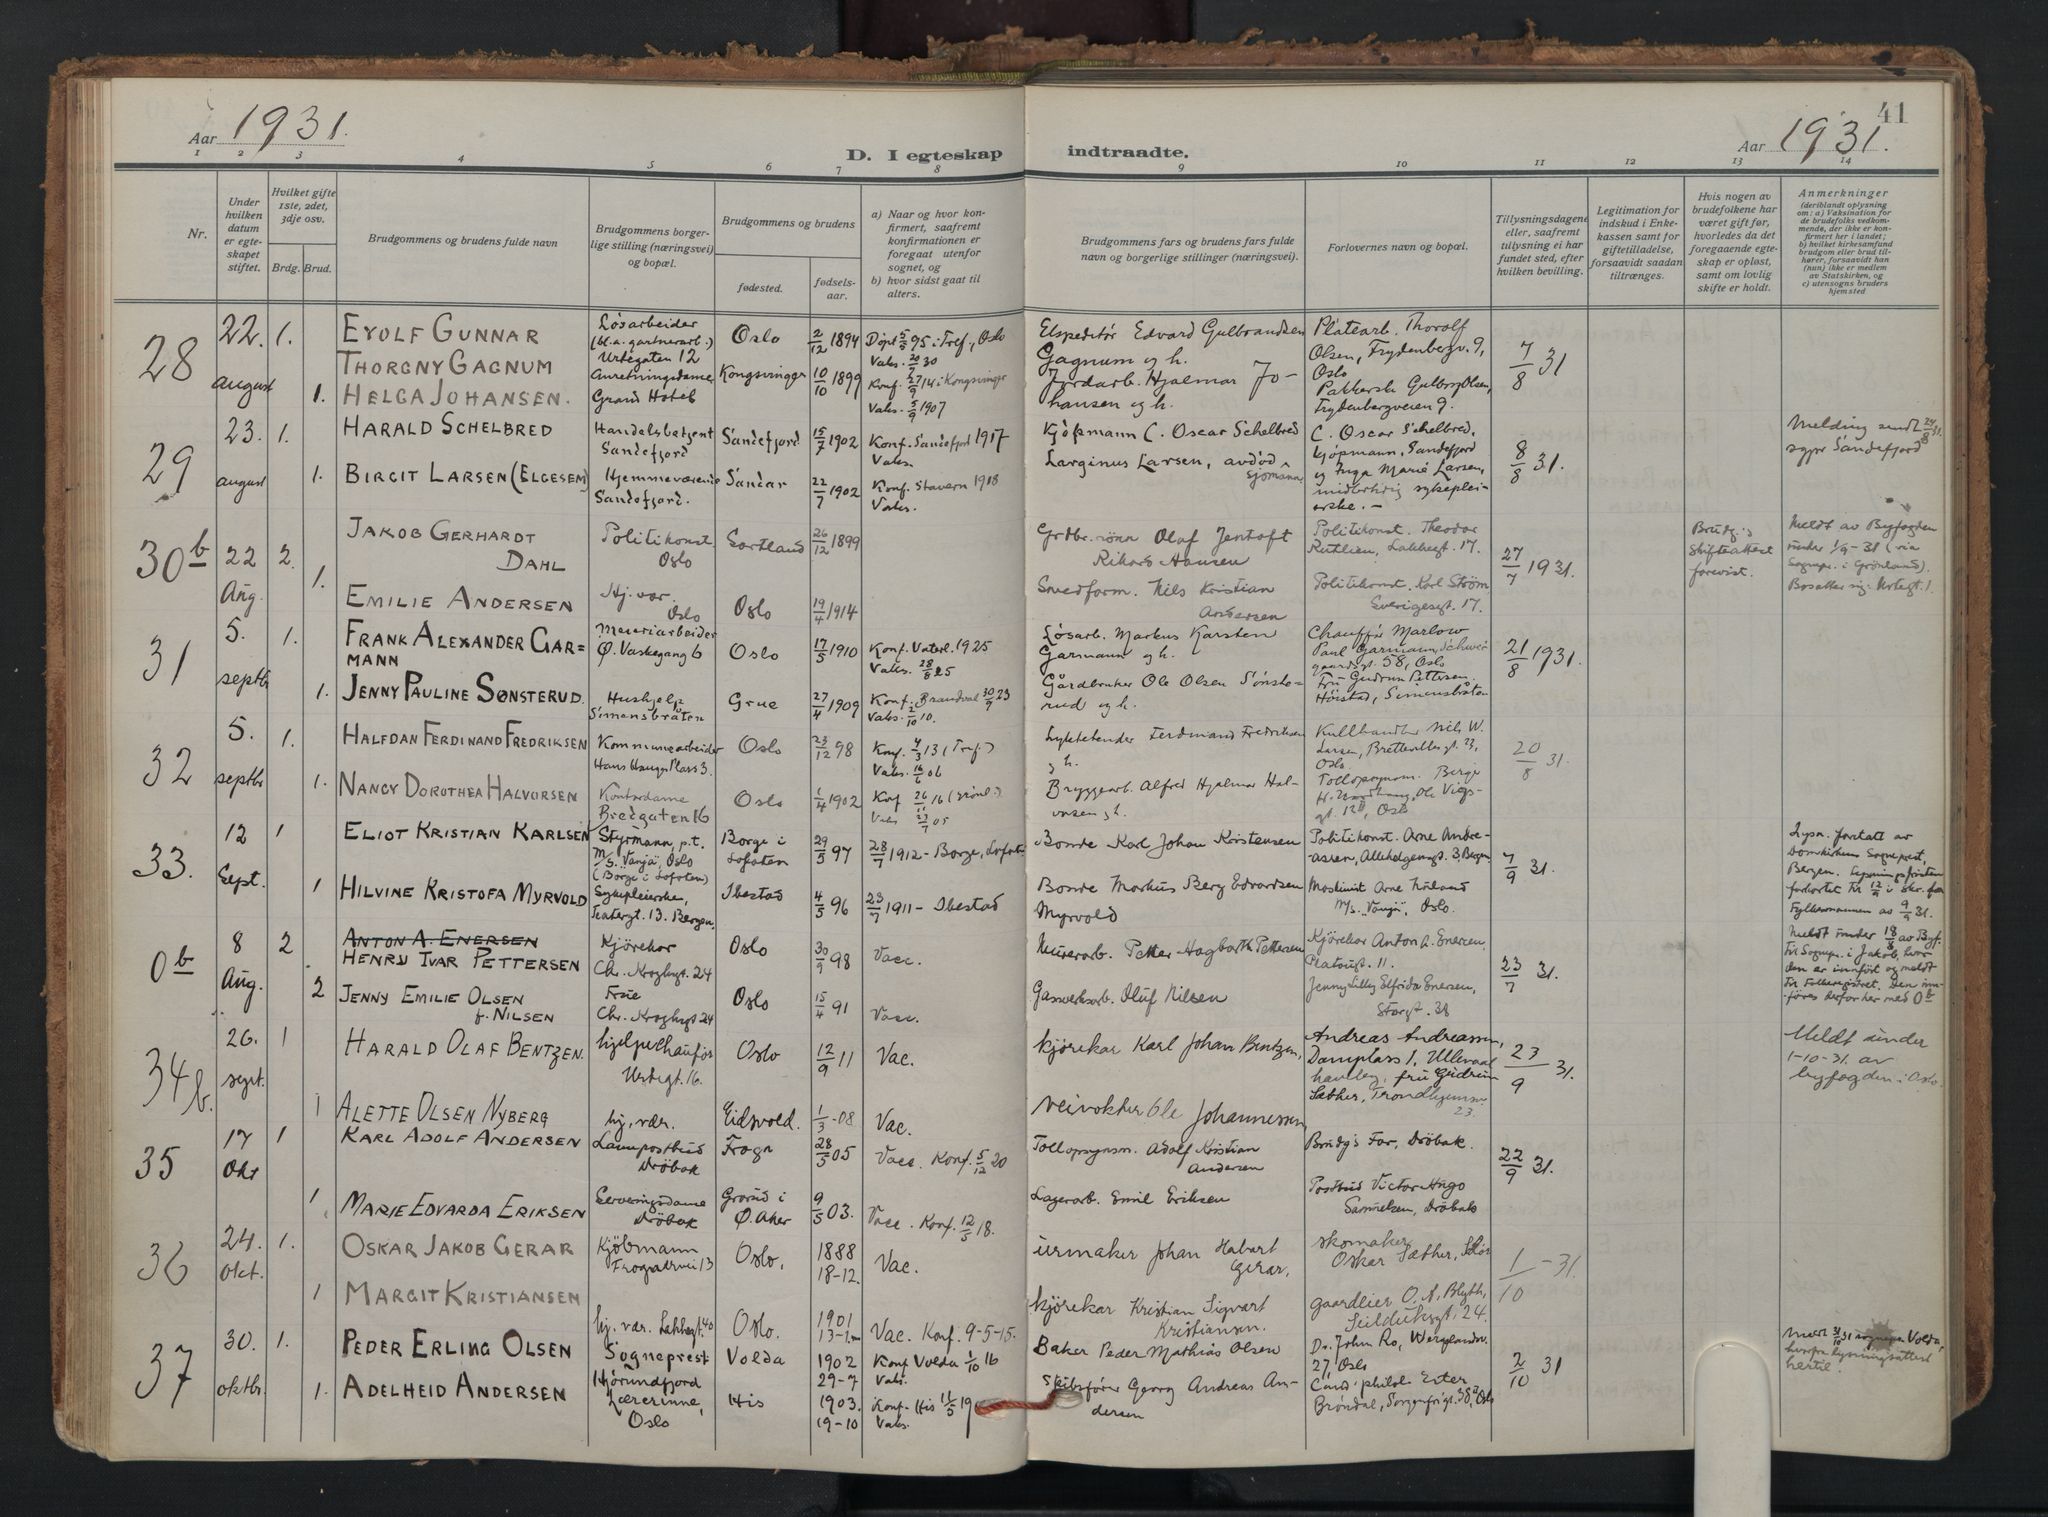 41
Aar 1931.
D. I egteskap indtraadte.
Aar 1931.
1 2 3 4 5 6 7 8 9 10 11 12 13 14
Nr.
Under hvilken datum er egteskapet stiftet.
Hvilket gifte 1ste, 2det, 3dje osv.
Brdg. Brud.
Brudgommens og brudens fulde navn
Brudgommens borgerlige stilling (næringsvei) og bopæl.
Brudgommens og brudens
fødested.
fødselsaar.
a) Naar og hvor konfirmert, saafremt konfirmationen er foregaat utenfor sognet, og
b) hvor sidst gaat til alters.
Brudgommens fars og brudens fars fulde navn og borgerlige stillinger (næringsvei).
Forlovernes navn og bopæl.
Tillysningsdagene eller, saafremt tillysning ei har fundet sted, efter hvilken bevilling.
Legitimation for indskud i Enkekassen samt for giftetilladelse, forsaavidt saadan tiltrænges.
Hvis nogen av brudefolkene har været gift før, hvorledes da det foregaaende egteskap er opløst, samt om lovlig skifte er holdt.
Anmerkninger
(deriblandt oplysning om: a) Vaksination for de brudefolks vedkommende, der ikke er konfirmert her i landet; b) hvilket kirkesamfund brudgom eller brud tilhører, forsaavidt han (hun) ikke er medlem av Statskirken, og c) utensogns bruders hjemsted
28 22. august 1. EYOLF GUNNAR THORGNY GAGNUM Løsarbeider (bl.a. gartnerarb.) Urtegaten 12 Oslo 2/12 1894 Døpt 5/5 95 i Tref., Oslo Vaks. 20/7 30
Ekspeditør Edvard Gulbrandsen Gagnum og h. Platearb. Thorolf Olsen, Frydenbergv. 9, Oslo 7/8 31
1. HELGA JOHANSEN. Anretningsdame Grand Hotel Kongsvinger 10/10 1899 Konf. 27/9 14 i Kongsvinger Vaks. 5/9 1907
Jordarb. Hjalmar Johansen og h. Frydenbergveien 9.
29 23. august 1. HARALD SCHELBRED Handelsbetjent Sandefjord Sandefjord 15/7 1902 Konf. Sandefjord 1917 Vaks.
Kjøpmann C. Oscar Schelbred C. Oscar Schelbred, kjøpmann, Sandefjord 8/8 31. Melding sendt 24/8 31. sgpr Sandefjord
1. BIRGIT LARSEN (ELGESEM) Hjemmeværende Sandefjord. Sandar 22/7 1902 Konf. Stavern 1918 Vaks.
Larginus Larsen, avdød sjømann og Inga Marie Larsen, midlertidig sykepleierske. -
30b 22 Aug. 2. JAKOB GERHARDT DAHL Politikonst. Oslo Sortland 26/12 1899
Grdbr. sønn Olaf Jentoft Rikard Hansen Politikonst. Theodor Rutlien, Lakkegt. 17. 27/7 1931. Brudg.s skifteattest forevist. Meldt av Byfogden under 1/9-31 (via Sognepr. i Grønland). Bosetter sig: Urtegt. 1.
1. EMILIE ANDERSEN Hj. vær. Oslo Oslo 19/4 1914
Smedform. Nils Kristian Andersen Politikonst. Karl Strøm Sverigesgt. 17.
31 5. septbr 1. FRANK ALEXANDER GARMANN Meieriarbeider Ø. Vaskegang 6 Oslo 17/5 1910 Konf. Vaterl. 1925 Vaks. 28/8 25
Løsarb. Markus Karsten Garmann og h. Chauffør Marlow Paul Garmann, Schweigaardsgt. 58, Oslo 21/8 1931.
1. JENNY PAULINE SØNSTERUD. Hushjelp Simensbråten Grue 27/4 1909 Konf. Brandval 30/9 23 Vaks. 2/10 10.
Gårdbruker Ole Olsen Sønsterud og h. Fru Gudrun Pettersen Høistad, Simensbråten
32 5. septbr 1. HALFDAN FERDINAND FREDRIKSEN Kommunearbeider Hans Hauges Plass 3. Oslo 23/12 98 Konf. 4/3 13 (Tref.) Vaks. 16/6 06
Lyktetender Ferdinand Fredriksen og h. Kullhandler Nils W. Larsen, Oslo 20/8 31.
1. NANCY DOROTHEA HALVORSEN Kontordame Bredgaten 16 Oslo 1/4 1902 Konf 26/11 16 (Grønl.) Vaks 23/7 05
Bryggearb. Alfred Hjalmar Halvorsen og h. Tollopsynsm. Birger Oslo
33. 12 Sept. 1 ELIOT KRISTIAN KARLSEN Styrmann, p.t. M/S. "Vanja", Oslo (Borge i Lofoten) Borge i Lofoten 29/5 97 28/7 1912 - Borge, Lofoten
Bonde Karl Johan Kristensen Politikonst. Arne Andreassen, Allehelgensgt. 3, Bergen 7/9 31. Lysn. foretatt av Domkirkens Sogneprest, Bergen. Lysningsfristen forkortet til 12/9 i skr. fra Fylkesmannen av 9/9 31.
1 HILVINE KRISTOFA MYRVOLD Sykepleierske, Teatergt. 13. Bergen. Ibestad 4/5 96 23/7 1911 - Ibestad
Bonde Markus Berg Edvardsen Myrvold Maskinist Arne M/S. "Vanja", Oslo.
0b 8 Aug. 2 ANTON A. ENERSEN HENRY IVAR PETTERSEN Kjörekar Chr. Kroghsgt 24 Oslo 30/9 98 Vacc.
Murerarb. Petter Hagbarth Pettersen Kjörekar Anton A. Enersen, Platousgt. 11. 23/7 31. Meldt under 18/8 av Byf. til Sognepr. i Jakob, hvor den er innført og meldt til Folkeregistret. Den innføres derfor her med 0b
2 JENNY EMILIE OLSEN f. NILSEN Frue Chr. Kroghsgt 24 Oslo 15/4 91 Vacc.
Gassverksarb. Oluf Nilsen Jenny Lilly Elfrida Enersen, Storgt. 38
34b. 26. sept. 1 HARALD OLAF BENTZEN. hjelpechauför Urtegt. 16. Oslo 12/9 11 Vac.
kjörekar Karl Johan Bentzen, Andreas Andreassen, Damplass 1, Ullevaal haveby, fru Gudrun Sæther, Trondhjemsv. 23. 23/9 31. Meldt under 1-10-31. av byfogden i Oslo.
1 ALETTE OLSEN NYBERG hj. vær. Eidsvold. 1/3 -08 Vac.
veivokter Ole Johannessen
35 17 Okt 1 KARL ADOLF ANDERSEN Landpostbud Dröbak Frogn 28/5 05 Vacc. Konf. 5/12 20
Tollopsynsm. Adolf Kristian Andersen Brudg's Far, Dröbak. 22/9 31.
1 MARIE EDVARDA ERIKSEN Serveringsdame Dröbak Grorud i Ø. Aker 9/5 03. Vacc. Konf. 12/5 18.
Lagerarb. Emil Eriksen Postbud Victor Hugo Samuelsen, Dröbak
36 24. Okt. 1. OSKAR JAKOB GERAR Kjöbmann Frognerveien 13 Oslo. 1888 18-12. Vac.
urmaker Johan Habart Gerar, skomaker Oskar Sæther, 1/10 - 31.
1 MARGIT KRISTIANSEN hj. vær. Lakkegt. 40 Oslo. 1901 Vac. Konf. 9-5-15.
kjörekar Kristian Sigvart Kristiansen. gaardeier O. A. Blyth, Seilduksgt. 24.
37 30. oktbr. 1. PEDER ERLING OLSEN Sogneprest Hjørundfjord Volda 1902 29-7 Konf Volda 1/10 16 Vaks.
Baker Peder Mathias Olsen Dr. John Ro, Wergelandsv. 27, Oslo 2/10 31 Meldt 31/10 31 sognepr. Volda, hvorfra lysningsattest hertil.
1. ADELHEID ANDERSEN Lærerinne, Oslo His 1903. 19-10 Konf. His 11/5 19 Vaks.
Skibsfører Georg Andreas Andersen Cand. philol. Ester Brøndal, Sorgenfrigt. 38, Oslo